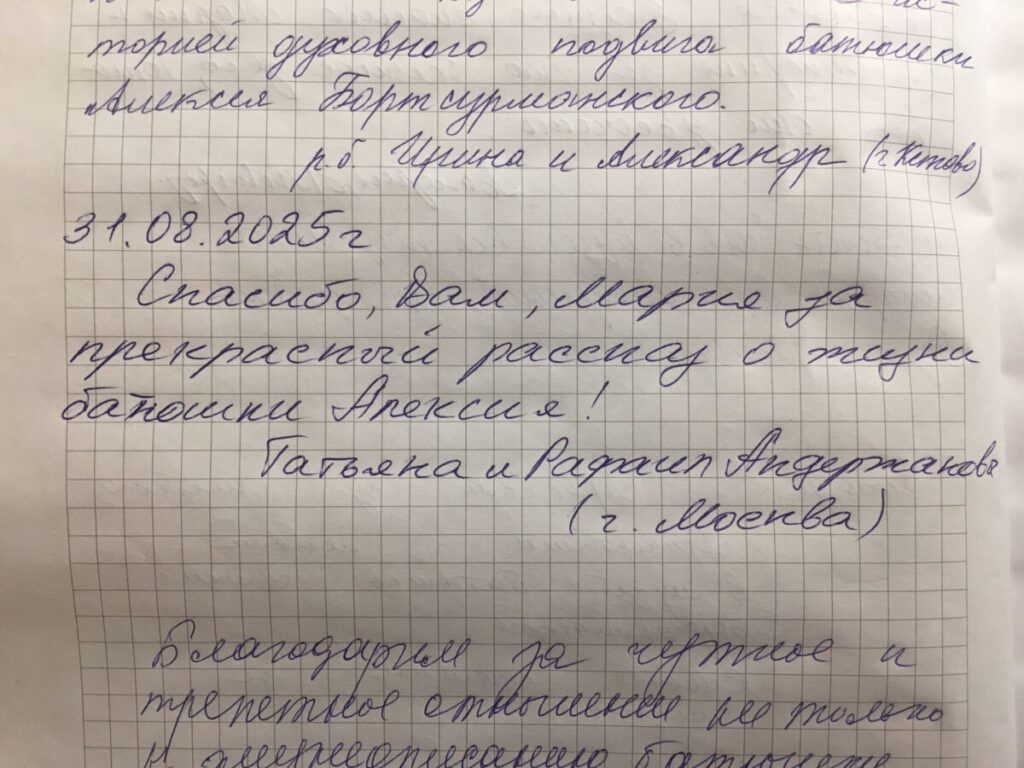 торией духовного подвига батюшки
Алексия Бортсурманского.
рб Ирина и Александр (г. Кстово)
31.08.2025г
Спасибо, Вам, Мария за
прекрасный рассказ о жизни
батюшки Алексия!
Татьяна и Рафаил Андержановы
(г. Москва)
Благодарим за чуткое и
трепетное отношение не только
к жизнеописанию батюшки